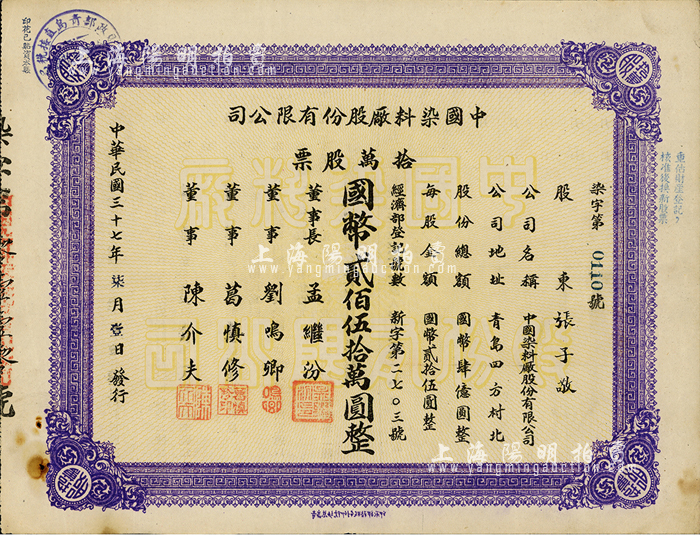 中國染料廠股份有限公司
拾萬股票
染字第0110號
股東張子敬
公司名稱 中國染料廠股份有限公司
公司地址 青島四方村北
股份總額 國幣肆億圓整
每股金額 國幣貳拾伍圓整
經濟部登記號數 新字第二七〇三號
國幣貳佰伍拾萬圓整
董事長 孟繼汾
董事 劉鳴卿
董事 葛慎修
董事 陳介夫
中華民國三十七年柒月壹日發行
重估財產登記後
核准後換新股票
中國染料廠
股份有限公司
上海陽明拍賣
www.yangmingauction.com
上海陽明拍賣
www.yangmingauction.com
上海陽明拍賣
www.yangmingauction.com